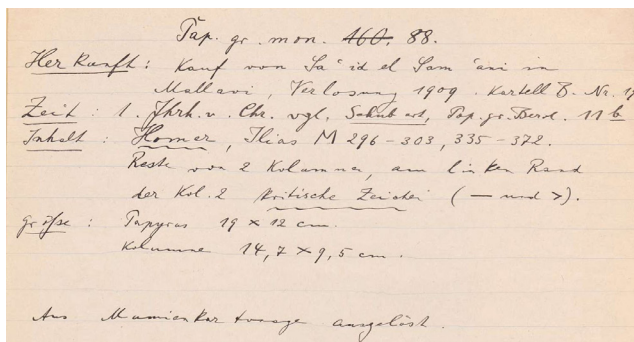 Pap. gr. mon. 160. 88.
Herkunft : Kauf von Sa'id el Sam'ani in
Mallavi, Verlosung 1909. Kartell B. Nr.
Zeit : 1. Jhrh. v. Chr. vgl. Schubart, Pap. gr. Berol. 11 b
Inhalt : Homer, Ilias M 296-303, 335-372.
Reste von 2 Kolumnen, am linken Rand
der Kol. 2 kritische Zeichen (— und >).
Größe : Papyrus 19 × 12 cm.
Kolumne 14,7 × 9,5 cm.
Aus Mumienkartonage ausgelöst.